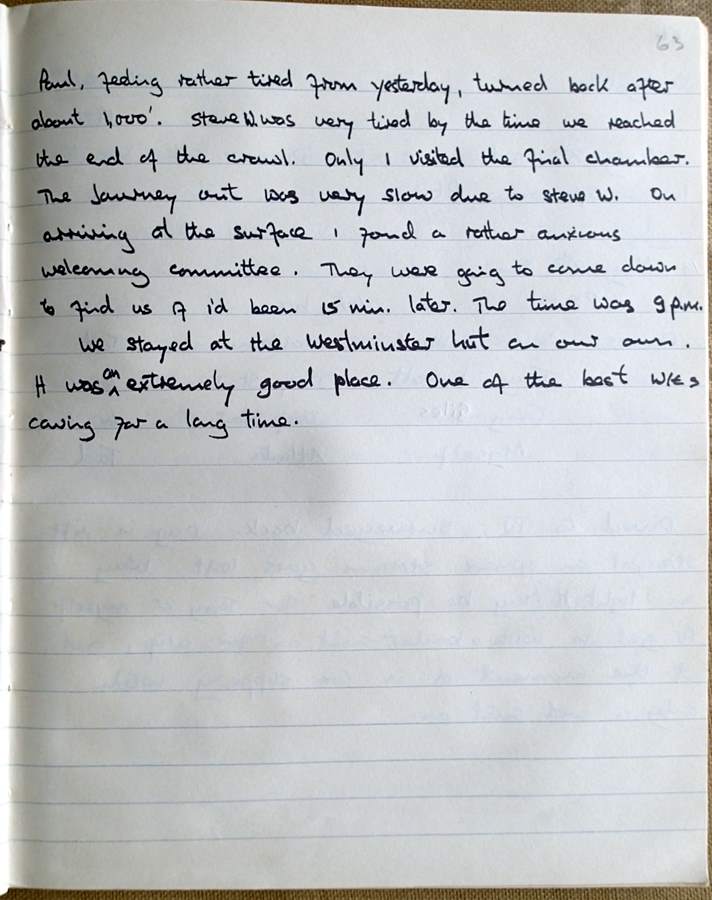 63
Paul, feeling rather tired from yesterday, turned back after
about 1,000'. Steve W. was very tired by the time we reached
the end of the crawl. Only I visited the final chamber.
The Journey out was very slow due to Steve W. On
arriving at the surface I fond a rather anxious
welcoming committee. They were going to come down
to find us if i'd been 15 min. later. The time was 9 p.m.
We stayed at the Westminster hut on our own.
It was an extremely good place. One of the best W/Es
caving for a long time.